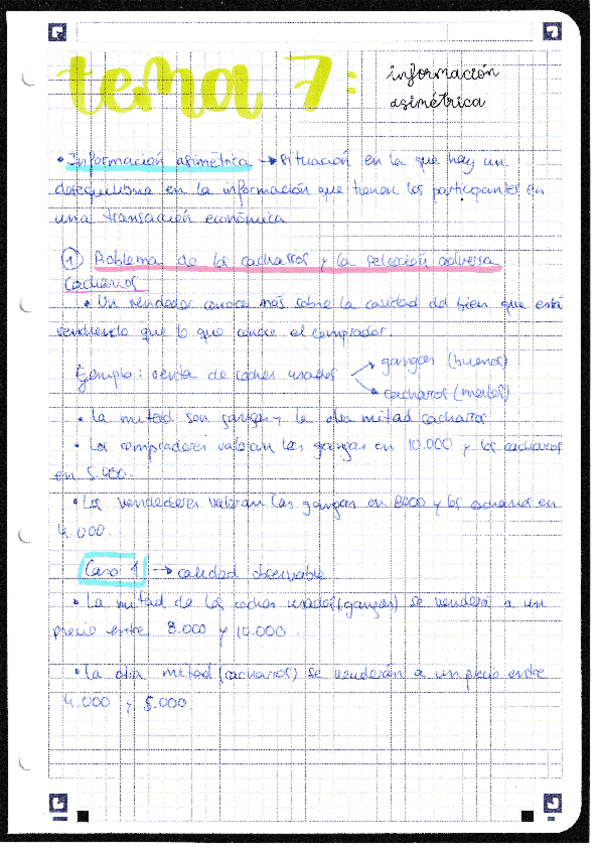 tema 7: información
asimétrica
• Información asimétrica → situación en la que hay un
desequilibrio en la información que tienen los participantes en
una transacción económica
① Problema de los cacharros y la selección adversa
Cacharros
• Un vendedor conoce más sobre la calidad del bien que está
vendiendo que lo que conoce el comprador.
Ejemplo: venta de coches usados → gangas (buenos)
→ cacharros (malos)
• La mitad son gangas y la otra mitad cacharros
• Los compradores valoran las gangas en 10.000 y los cacharros
en 5.000.
• Los vendedores valoran las gangas en 8000 y los cacharros en
4.000.
Caso 1 → calidad observable
• La mitad de los coches usados (gangas) se venderá a un
precio entre 8.000 y 10.000.
• La otra mitad (cacharros) se venderán a un precio entre
4.000 y 5.000